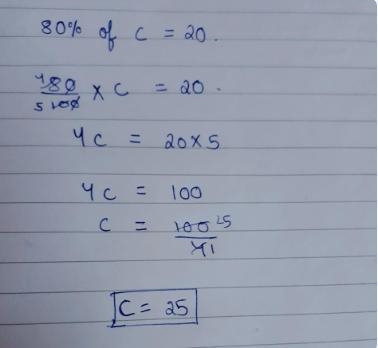 80% of C = 20.
4 80/5 100 × C = 20.
4C = 20×5
4C = 100
C = 100 25/4 1
C = 25